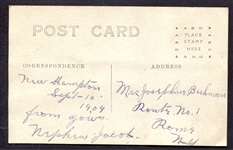 POST CARD
PLACE
STAMP
HERE
CORRESPONDENCE
ADDRESS
New Hampton
Sept-10-
1909
from yours.
Nephew Jacob.
Mrs Josephine Beekman
Route No. 1
Rome